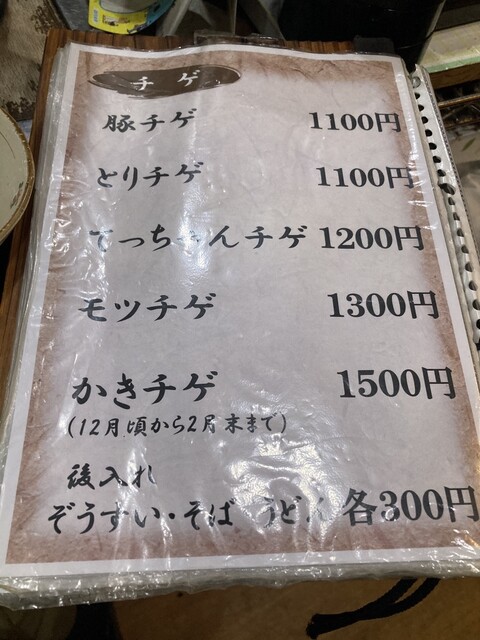 チゲ
豚チゲ 1100円
とりチゲ 1100円
てっちゃんチゲ 1200円
モツチゲ 1300円
かきチゲ 1500円
(12月頃から2月末まで)
後入れ
ぞうすい・そば うどん 各300円